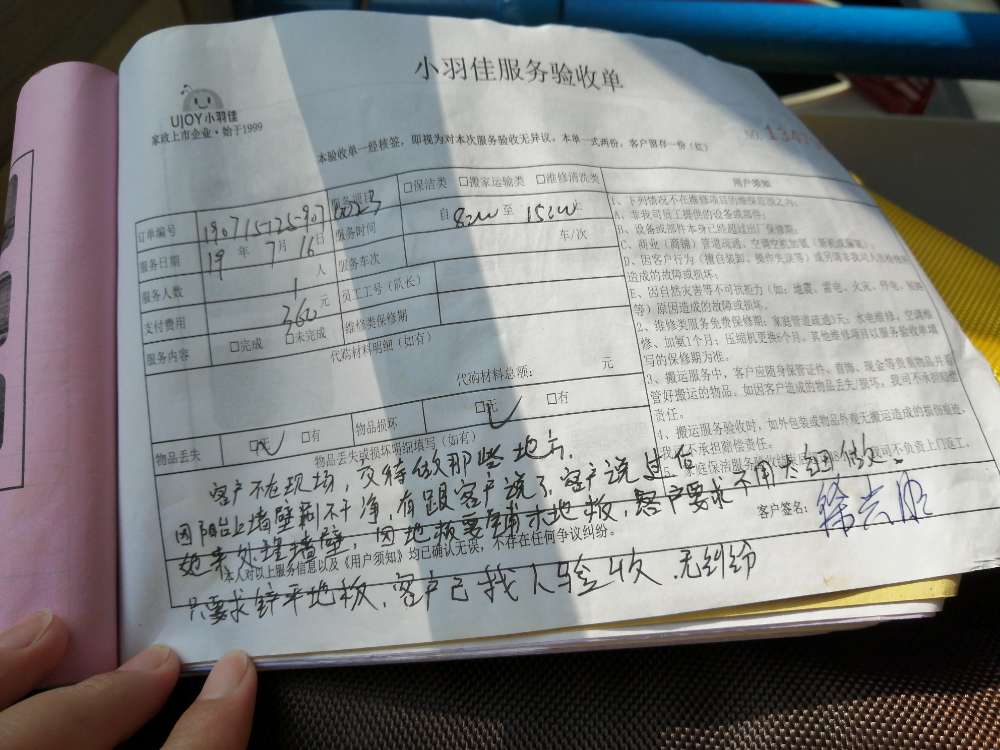 小羽佳服务验收单
UJOY小羽佳
家政上市企业·始于1999
本验收单一经核签，即视为对本次服务验收无异议，本单一式两份，客户留存一份（红）
NO. 1347
订单编号 190715-125-907 服务项目 □保洁类 □搬家运输类 □维修清洗类
服务日期 19年7月16日 服务时间 自 8:00 至 15:00
服务人数 1人 服务车次 车/次
支付费用 360元 员工工号（队长）
服务内容 □完成 □未完成 维修类保修期
代购材料明细（如有）
代购材料总额： 元
物品丢失 □无 □有 物品损坏 □无 □有
物品丢失或损坏明细填写（如有）
客户不在现场，交待做那些地方，
因阳台上墙壁刷不干净，有跟客户说了，客户说过后
她来处理墙壁，因地板要铺木地板，客户要求不用太细做。
本人对以上服务信息以及《用户须知》均已确认无误，不存在任何争议纠纷。
客户签名：
只要求铲平地板，客户已找人验收 无纠纷
用户须知
1、下列情况不在维修项目的维保范围之内：
A、非我司员工提供的设备或部件；
B、设备或部件本身已经超过出厂保修期；
C、商业（商铺）管道疏通、空调空机加氟
D、因客户行为（擅自装卸、操作失误等）或另请非我司人员检修
造成的故障或损坏；
E、因自然灾害等不可抗拒力（如：地震、雷电、火灾、停电、
等）原因造成的故障或损坏。
2、维修类服务免费保修期：家庭管道疏通3天；水电维修、空调维
修、加氟1个月；压缩机更换6个月。其他维修项目以服务验收单填
写的保修期为准。
3、搬运服务中，客户应随身保管证件、首饰、现金等贵重物品并
管好搬运的物品。如因客户造成的物品丢失/损坏，我司不承担赔偿
责任。
4、搬运服务验收时，如外包装或物品外观无搬运造成的损伤痕迹，
我司不承担赔偿责任。
我司不负责上门返工。